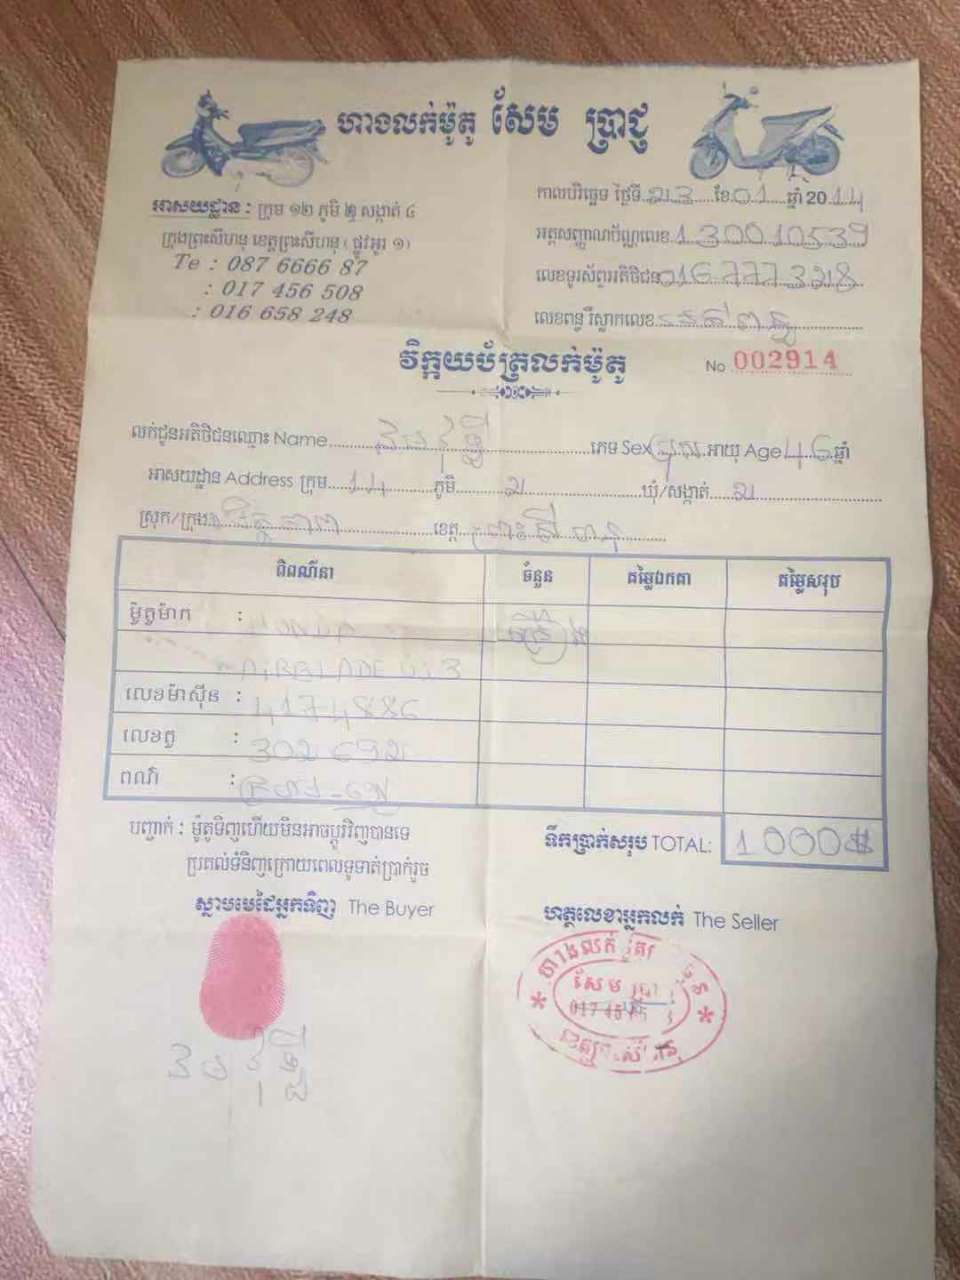 ហាងលក់ម៉ូតូ សែម ប្រាជ្ញ
អាសយដ្ឋាន : ក្រុម ១២ ភូមិ ២ សង្កាត់ ៤
ក្រុងព្រះសីហនុ ខេត្តព្រះសីហនុ ( ផ្លូវអូរ ១)
Te : 087 6666 87
: 017 456 508
: 016 658 248
កាលបរិច្ឆេទ ថ្ងៃទី 23 ខែ 01 ឆ្នាំ 2014
អត្តសញ្ញាណប័ណ្ណលេខ 130010539
លេខទូរស័ព្ទអតិថិជន 016 777 328
លេខពន្ធ រឺស្លាកលេខ
វិក្កយប័ត្រលក់ម៉ូតូ
No 002914
លក់ជូនអតិថិជនឈ្មោះ Name ភេទ Sex ប្រុស អាយុ Age 46 ឆ្នាំ
អាសយដ្ឋាន Address ក្រុម 14 ភូមិ ២ ឃុំ/សង្កាត់ ២
ស្រុក/ក្រុង មិត្តភាព ខេត្ត ព្រះសីហនុ
ពិពណ៌នា ចំនួន តម្លៃឯកតា តម្លៃសរុប
ម៉ូតូម៉ាក : HONDA គ្រឿង
AIRBLADE
លេខម៉ាស៊ីន : 4174886
លេខតួ :
ពណ៌ :
បញ្ជាក់ : ម៉ូតូទិញហើយមិនអាចប្តូរវិញបានទេ
ប្រគល់ទំនិញក្រោយពេលទូទាត់ប្រាក់រួច
ទឹកប្រាក់សរុប TOTAL: 1000$
ស្នាមមេដៃអ្នកទិញ The Buyer
ហត្ថលេខាអ្នកលក់ The Seller
ហាងលក់
សែម